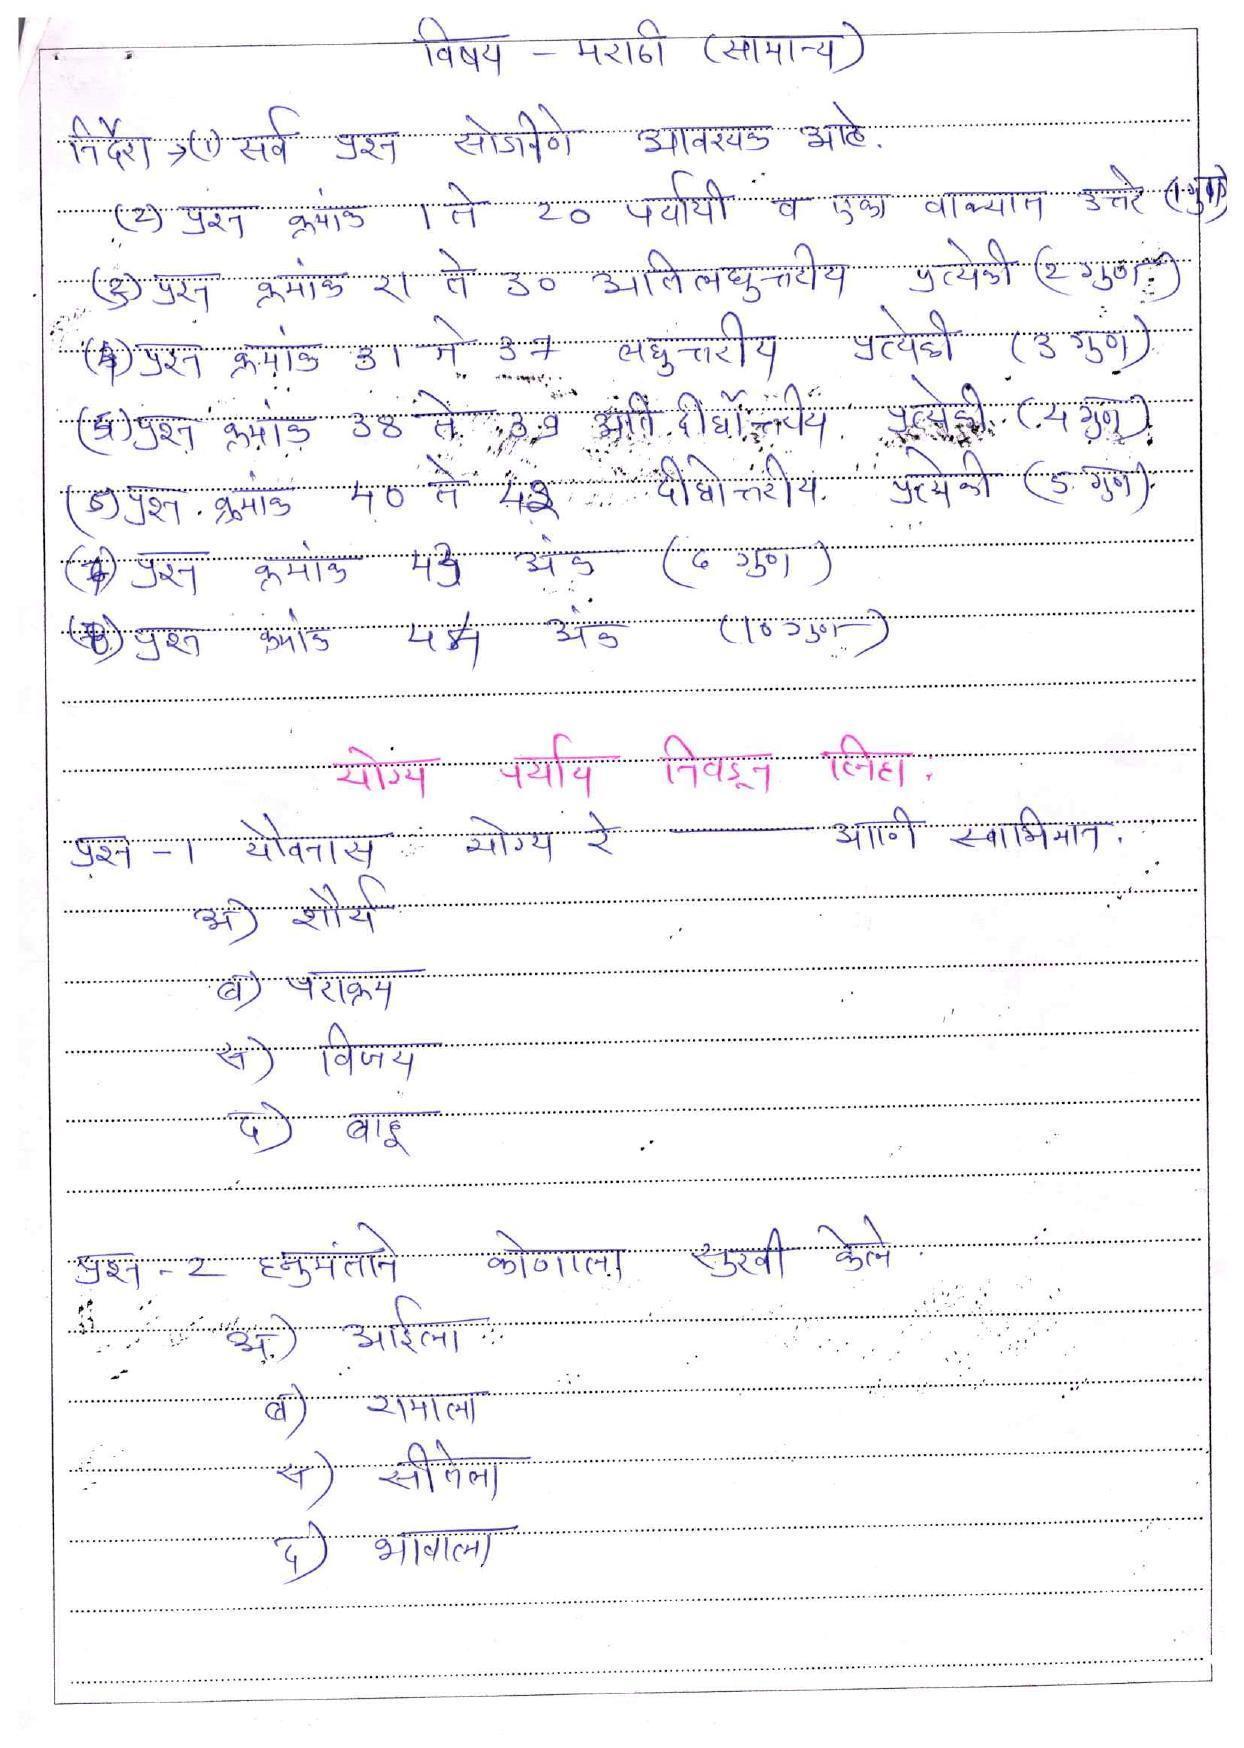 विषय – मराठी (सामान्य)
निर्देश → (1) सर्व प्रश्न सोडविणे आवश्यक आहे.
(2) प्रश्न क्रमांक 1 ते 20 पर्यायी व एका वाक्यात उत्तरे (1 गुण)
(3) प्रश्न क्रमांक 21 ते 30 अतिलघुत्तरीय प्रत्येकी (2 गुण)
(4) प्रश्न क्रमांक 31 ते 37 लघुत्तरीय प्रत्येकी (3 गुण)
(5) प्रश्न क्रमांक 38 ते 39 अति दीर्घोत्तरीय प्रत्येकी (4 गुण)
(6) प्रश्न क्रमांक 40 ते 42 दीर्घोत्तरीय. प्रत्येकी (5 गुण).
(7) प्रश्न क्रमांक 43 अंक (6 गुण)
(8) प्रश्न क्रमांक 44 अंक (10 गुण)
योग्य पर्याय निवडून लिहा.
प्रश्न – 1 यौवनास योग्य रे ——— आणि स्वाभिमान.
अ) शौर्य
ब) पराक्रम
स) विजय
द) बाहू
प्रश्न – 2 हनुमंताने कोणाला सुखी केले
अ) आईला
ब) रामाला
स) सीतेला
द) भावाला